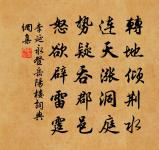 轉地傾荊水
連天漲洞庭
勢疑吞郡邑
怒欲辟雷霆
李延永登岳陽樓詞典
網集